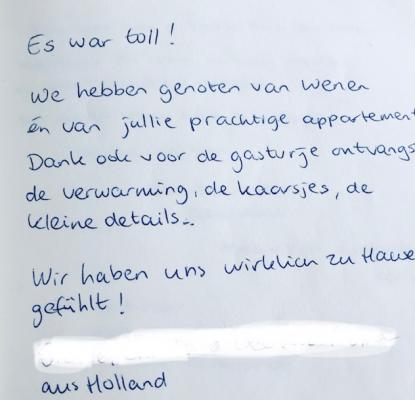 Es war toll!
We hebben genoten van Wenen
én van jullie prachtige appartement
Dank ook voor de gastvrije ontvangs
de verwarming, de kaarsjes, de
kleine details..
Wir haben uns wirklich zu Hause
gefühlt!
aus Holland